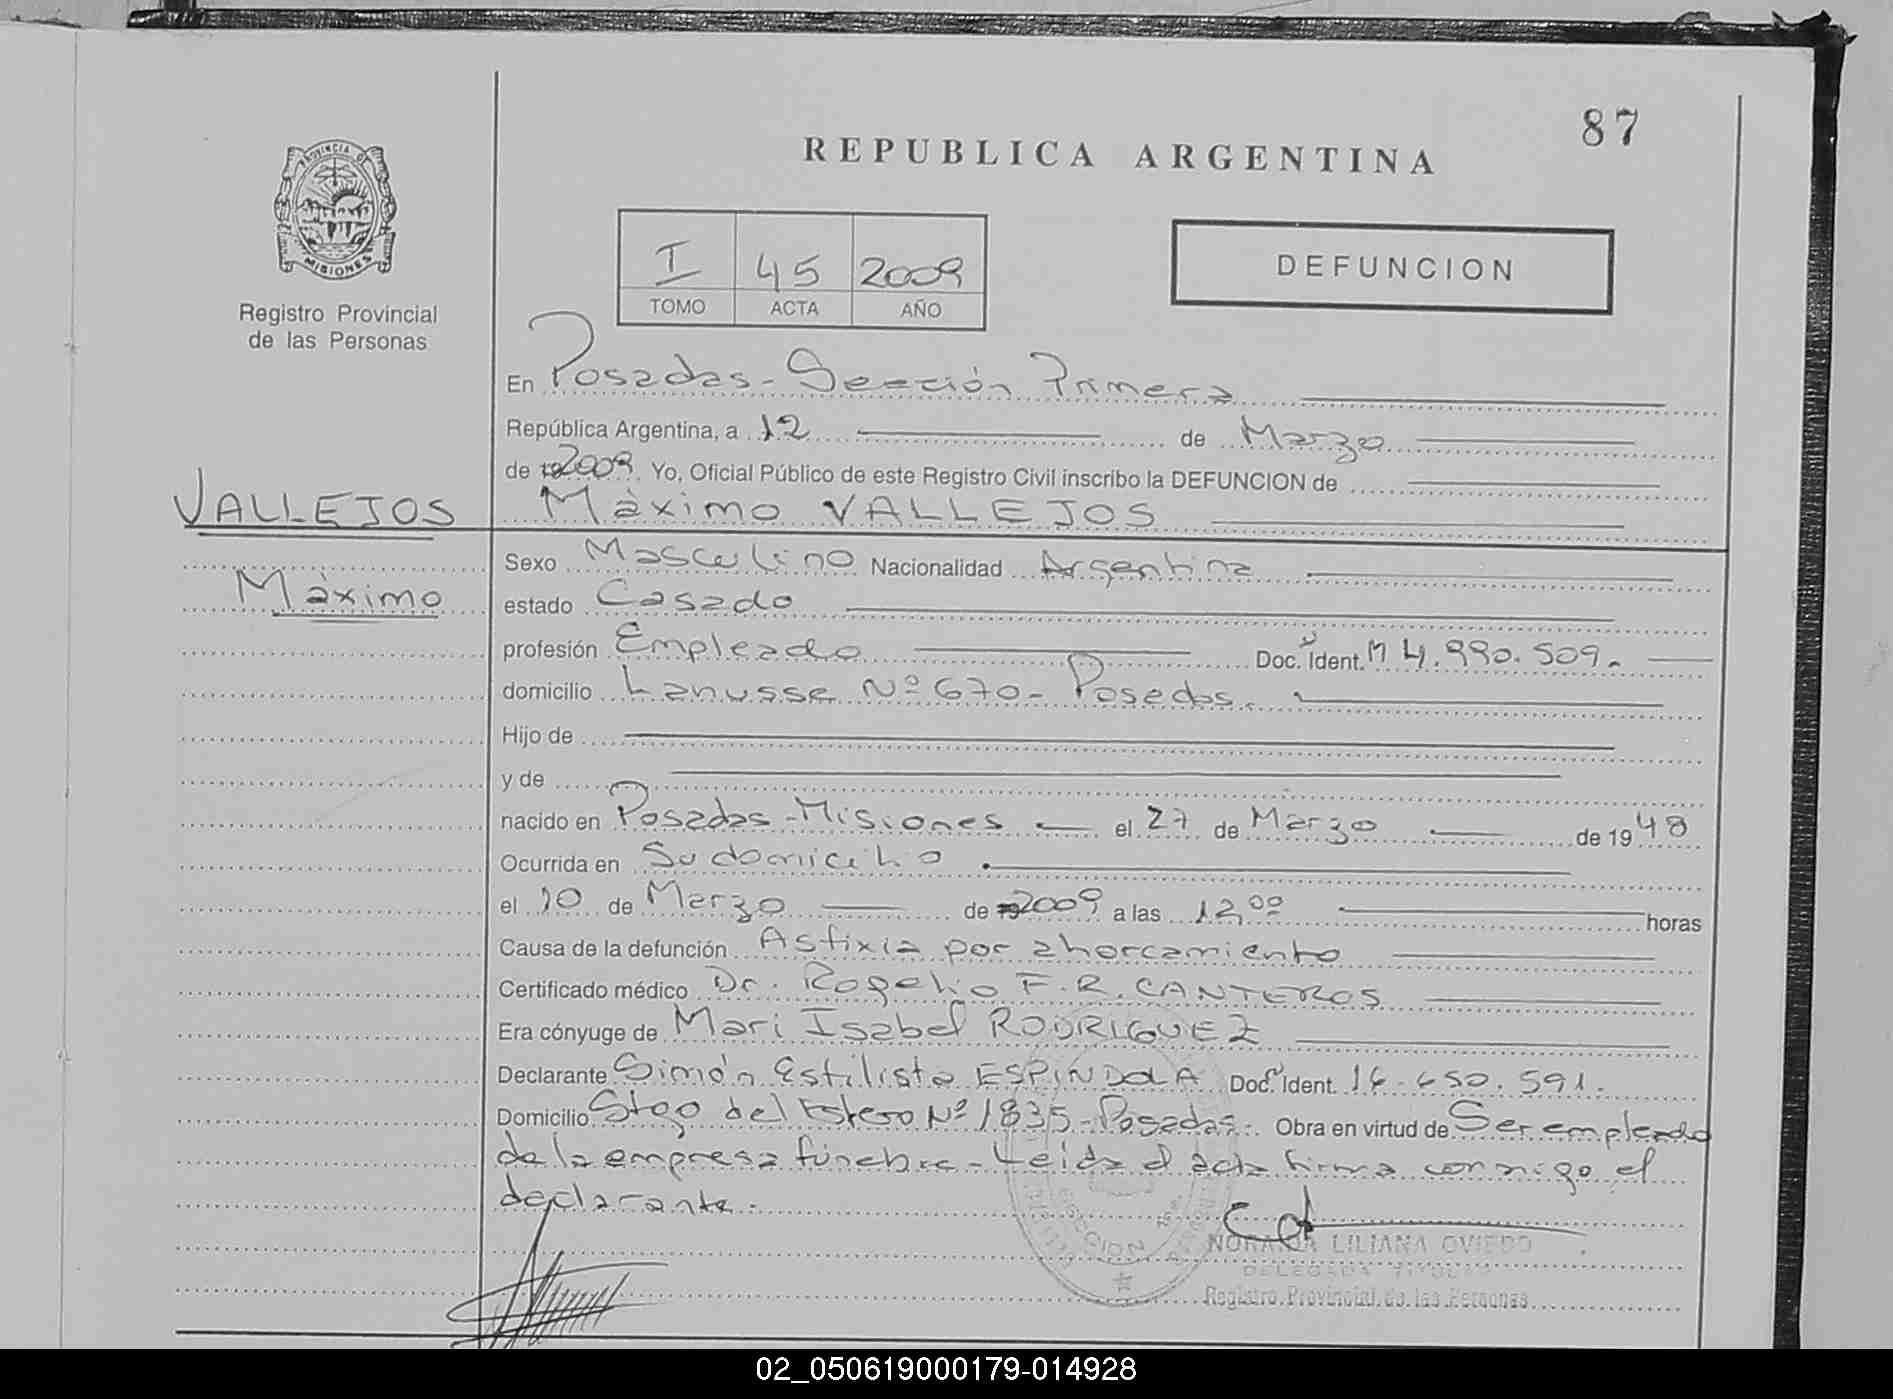 87
REPUBLICA ARGENTINA
PROVINCIA DE
MISIONES
Registro Provincial
de las Personas
I 45 2009
TOMO ACTA AÑO
DEFUNCION
En Posadas - Sección Primera
República Argentina, a 12 de Marzo
de 2009 Yo, Oficial Público de este Registro Civil inscribo la DEFUNCION de
VALLEJOS Màximo VALLEJOS
Sexo Masculino Nacionalidad Argentina
Màximo estado Casado
profesión Empleado Doc. Ident. M 4.990.509.
domicilio Lanusse Nº 670 - Posadas.
Hijo de
y de
nacido en Posadas - Misiones el 27 de Marzo de 1948
Ocurrida en Su domicilio
el 10 de Marzo de 2009 a las 12,00 horas
Causa de la defunción Asfixia por ahorcamiento
Certificado médico Dr. Rogelio F.R. CANTEROS
Era cónyuge de Mari Isabel RODRIGUEZ
Declarante Simón Estilisto ESPINDOLA Doc. Ident. 16.650.591.
Domicilio Stgo del Estero Nº 1835 - Posadas. Obra en virtud de Ser empleado
de la empresa fúnebre - Leida el acta firma conmigo el
declarante.
SECCION
LILIANA OVIEDO
DELEGADA TITULAR
Registro Provincial de las Personas
02_050619000179-014928